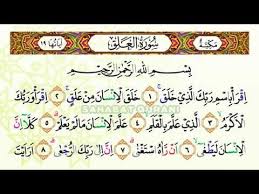 مكية سورة العلق آياتها ١٩
بِسْمِ اللَّهِ الرَّحْمَٰنِ الرَّحِيمِ
اِقْرَأْ بِاسْمِ رَبِّكَ الَّذِي خَلَقَ ۝١ خَلَقَ الْإِنسَانَ مِنْ عَلَقٍ ۝٢ اِقْرَأْ وَرَبُّكَ
الْأَكْرَمُ ۝٣ الَّذِي عَلَّمَ بِالْقَلَمِ ۝٤ عَلَّمَ الْإِنسَانَ مَا لَمْ يَعْلَمْ ۝٥ كَلَّا إِنَّ
الْإِنسَانَ لَيَطْغَى ۝٦ أَن رَّآهُ اسْتَغْنَى ۝٧ إِنَّ إِلَى رَبِّكَ الرُّجْعَى ۝٨ أَرَأَيْتَ